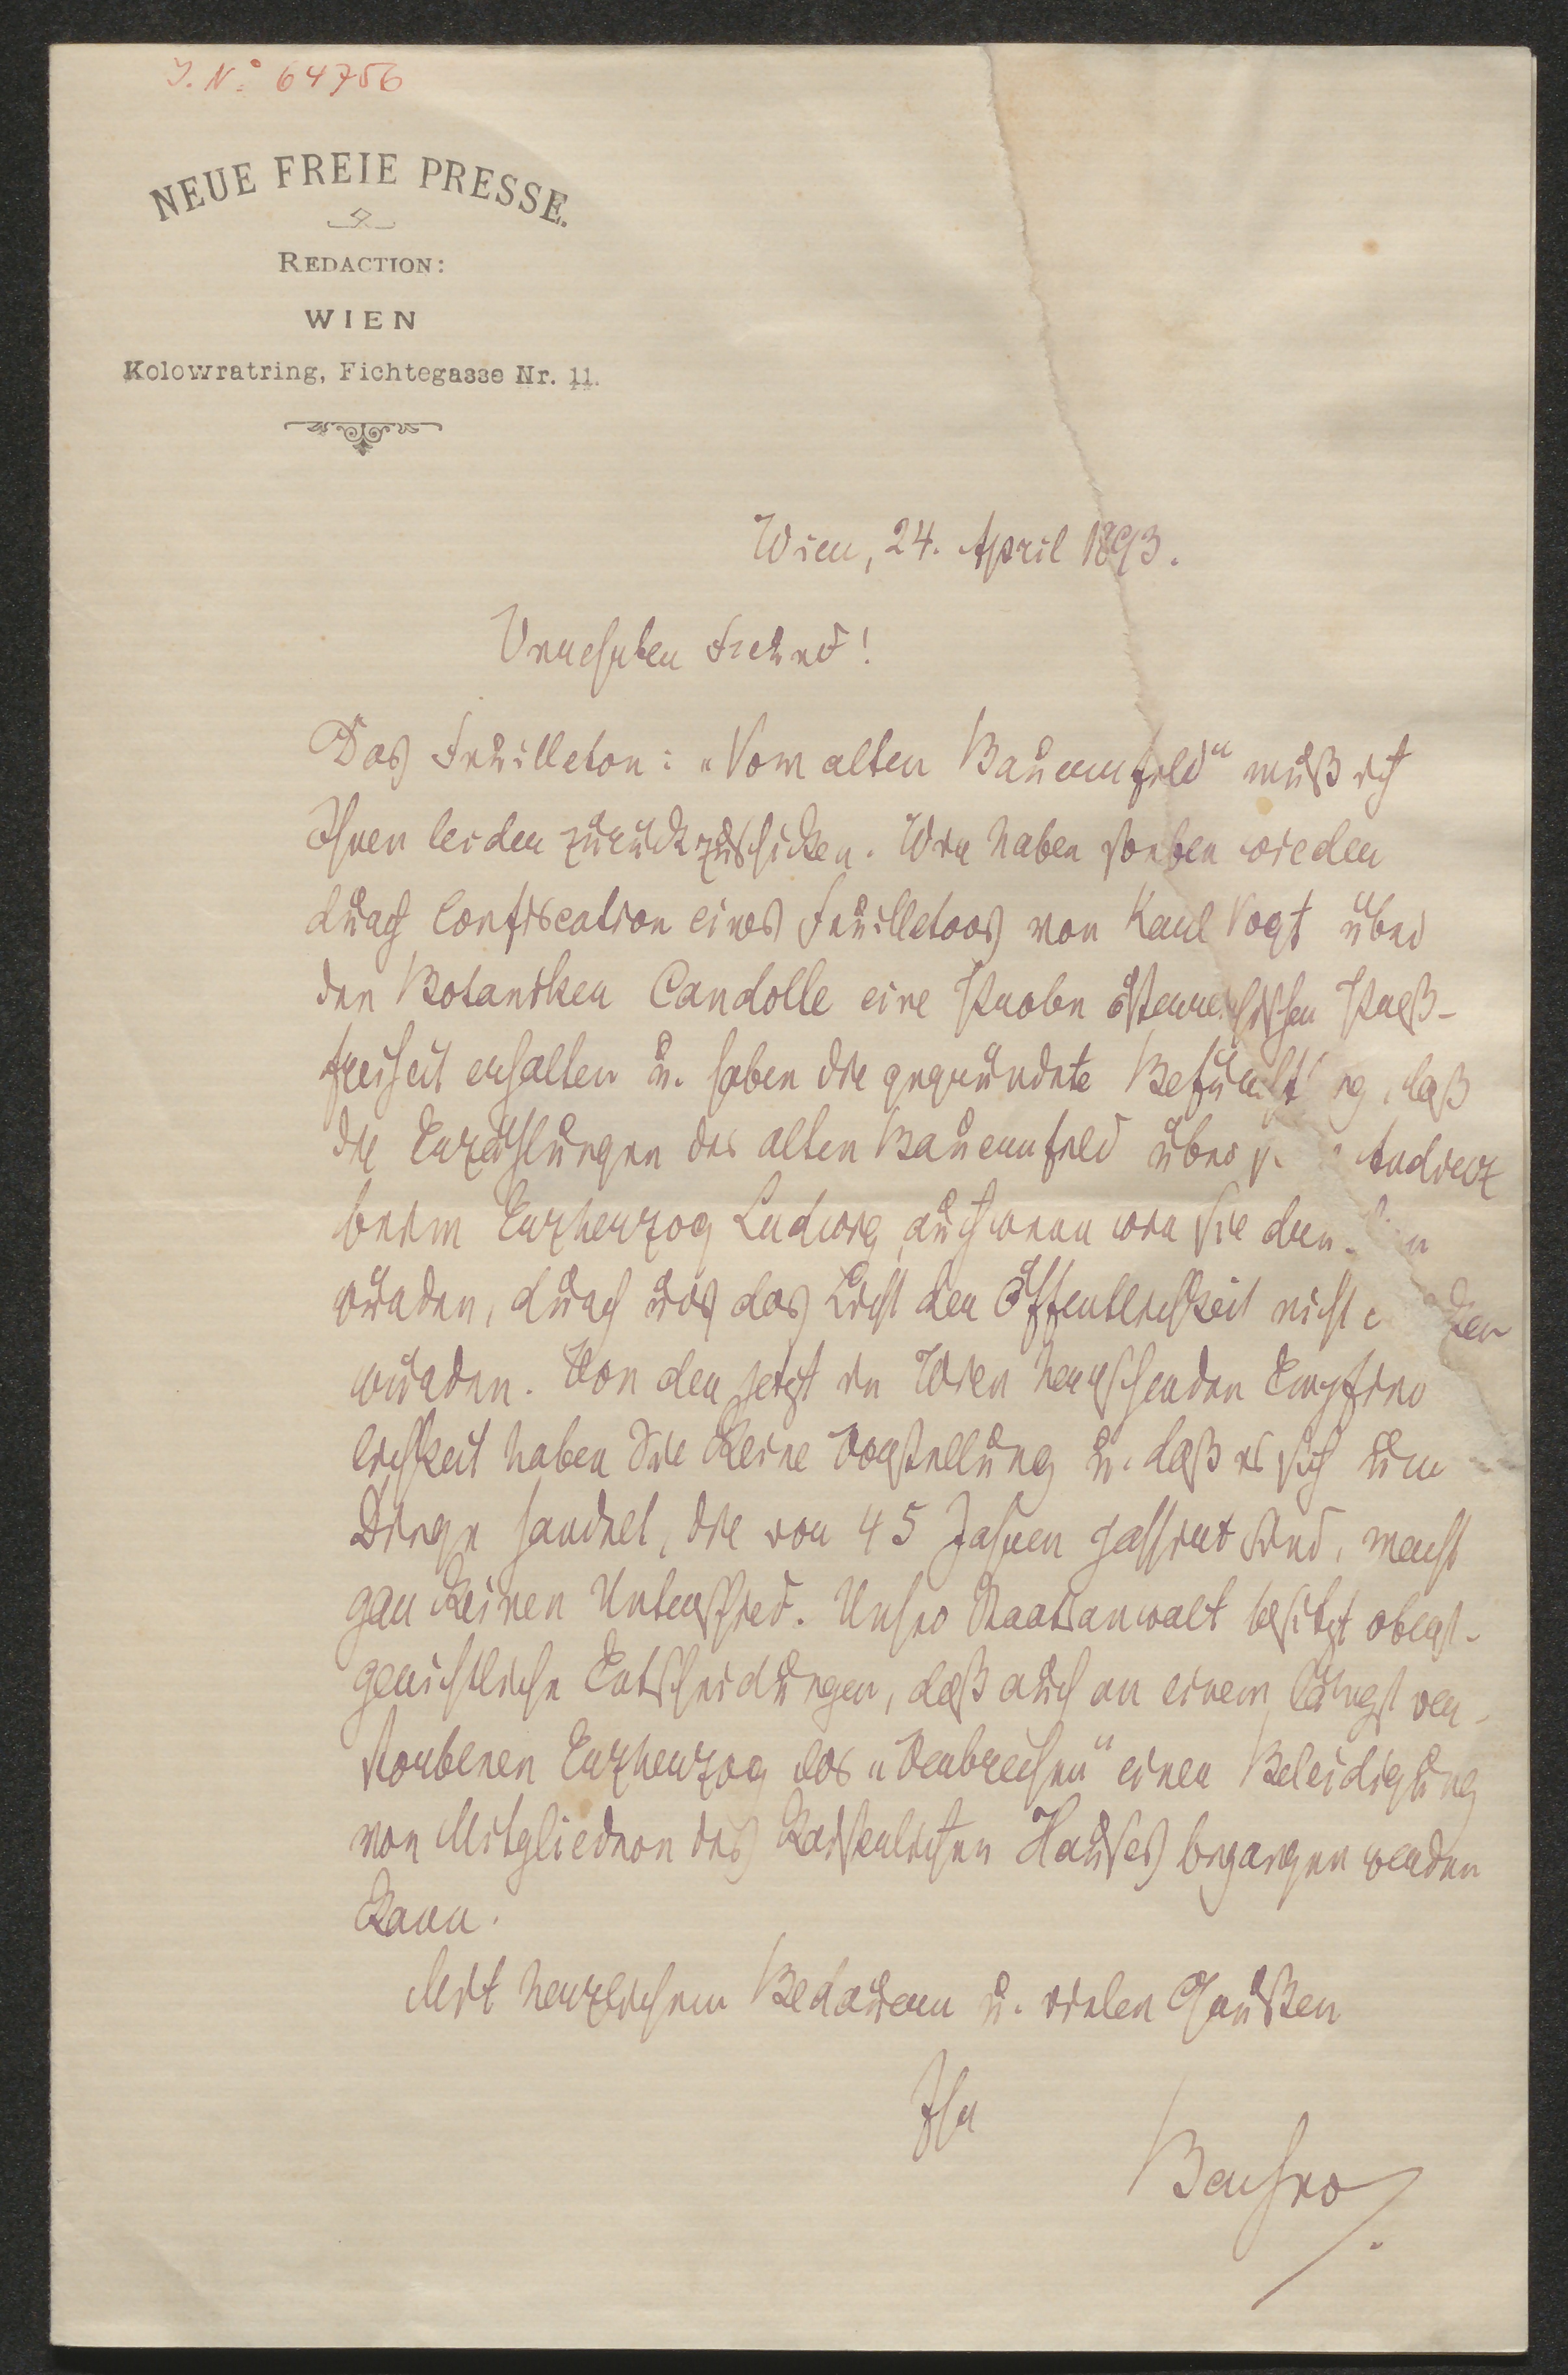 J. No: 64756
NEUE FREIE PRESSE.
REDACTION:
WIEN
Kolowratring, Fichtegasse Nr. 11.
Wien, 24. April 1893.
Verehrter Freund!
Das Feuilleton: „Vom alten Bauernfeld“ muß ich
Ihnen leider zurückzuschicken. Wir haben soeben wieder
durch Confiscation eines Feuilletons von Karl Vogt über
den Botaniker Candolle eine Probe österreichischer Preß-
freiheit erhalten u. haben die gegründete Befürcht ng, daß
die Erzählungen des alten Bauernfeld über s. Audienz
beim Erzherzog Ludwig, auch wenn wir sie
würden, durch uns das Licht der Öffentlichkeit nicht
würden. Von der jetzt in Wien herrschenden Empfind
lichkeit haben Sie keine Vorstellung u. daß es sich um
Dinge handelt, die vor 45 Jahren passirt sind, macht
gar keinen Unterschied. Unser Staatsanwalt besitzt oberst-
gerichtliche Entscheidungen, daß auch an einem längst ver-
storbenen Erzherzog das „Verbrechen“ einer Beleidigung
von Mitgliedern des kaiserlichen Hauses begangen werden
kann.
Mit herzlichem Bedauern u. vielen Grüßen
Ihr
Bacher